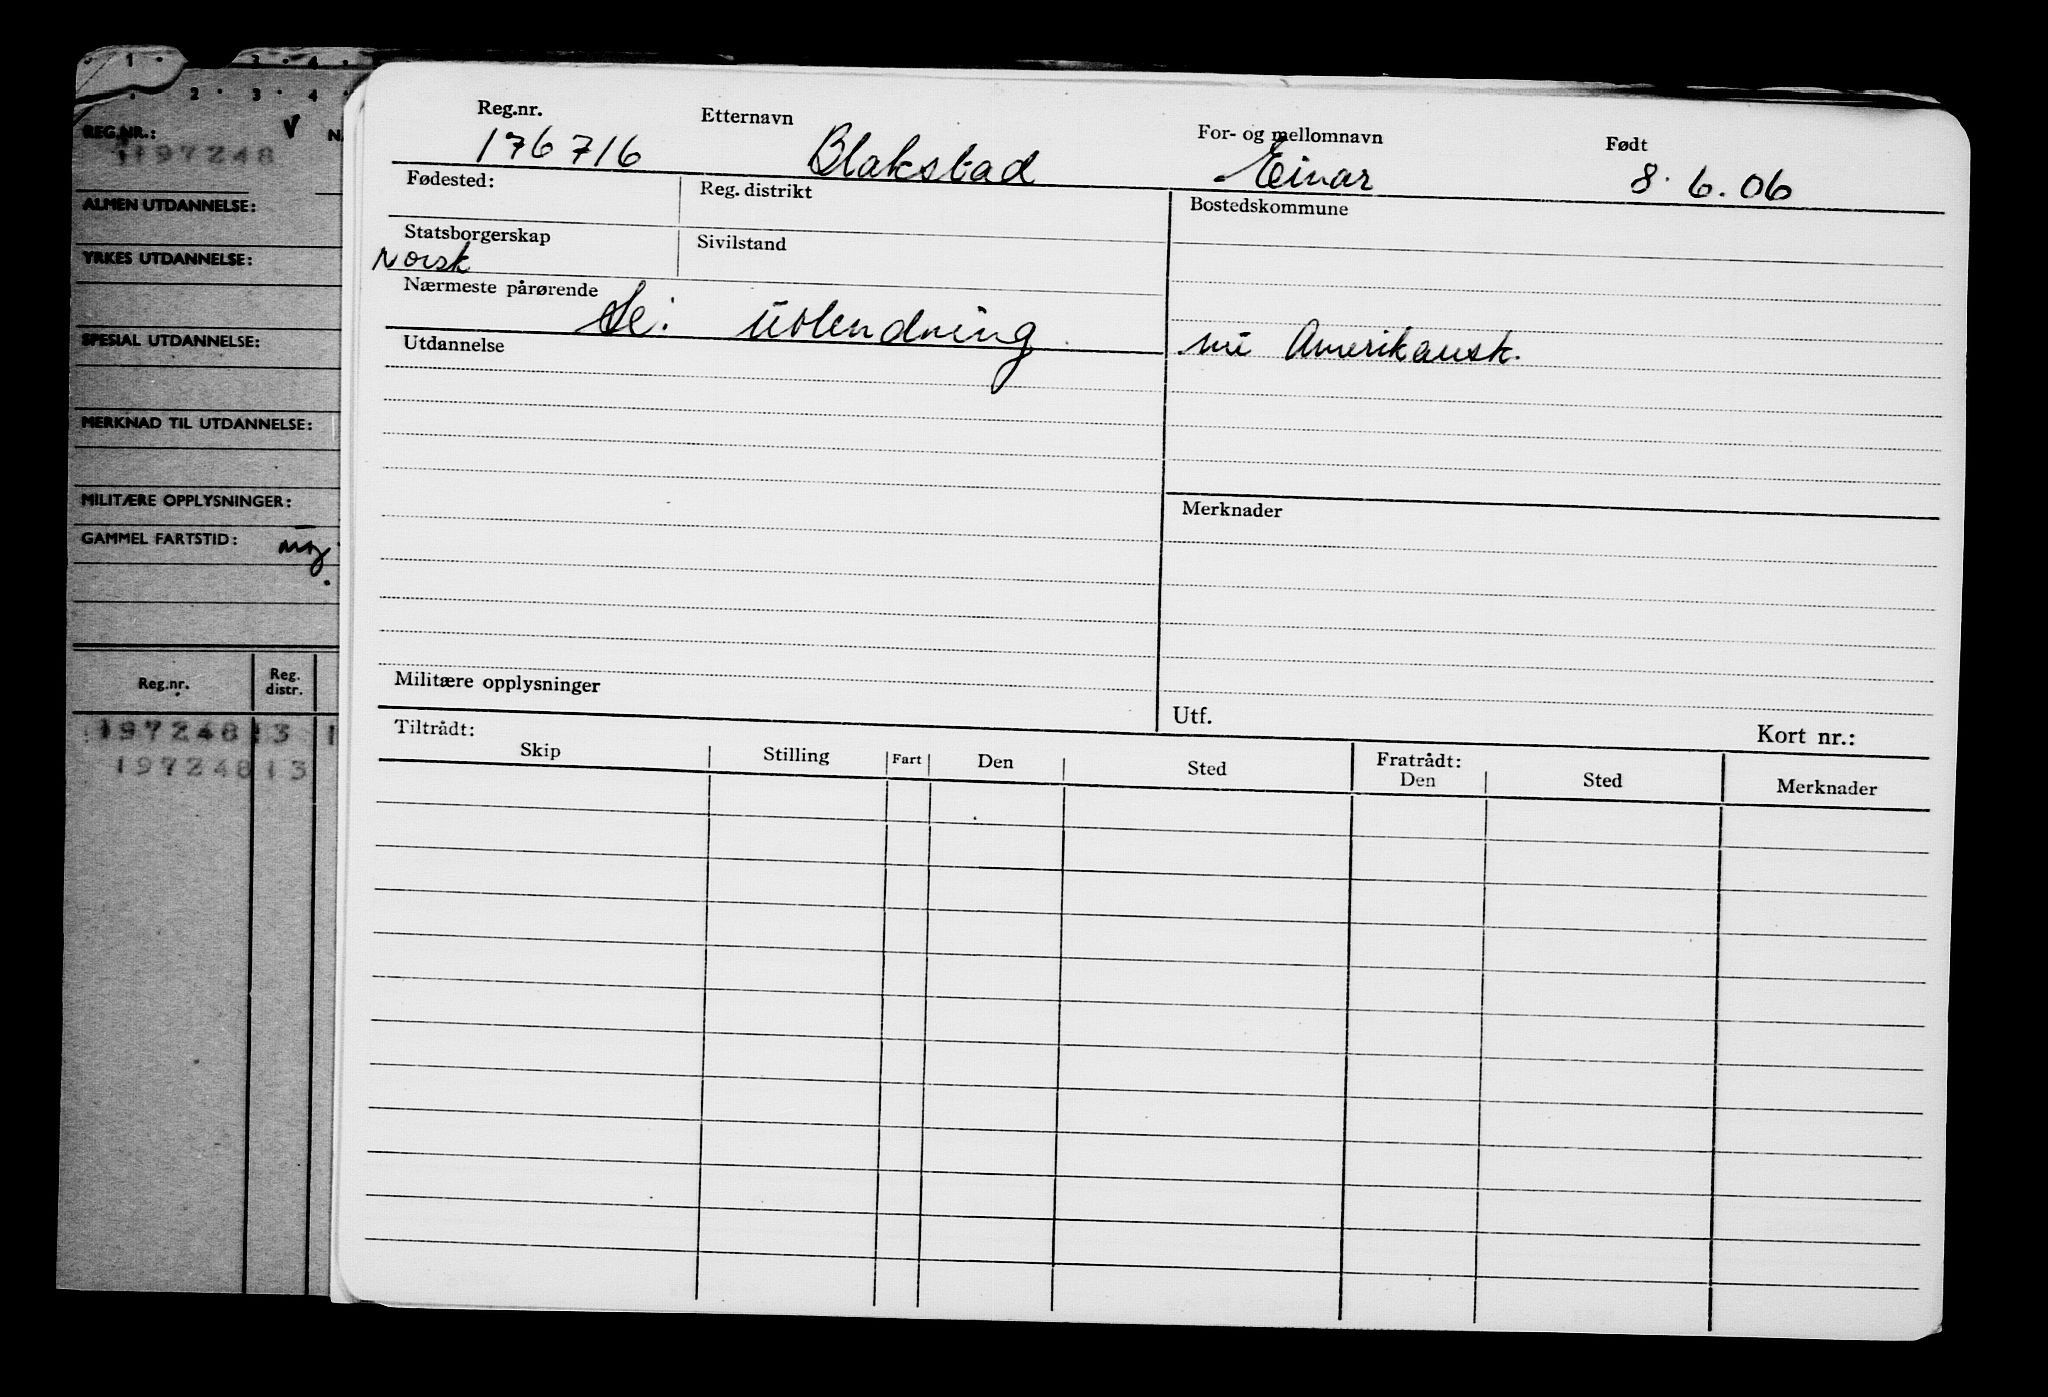 1 · 3 · 4 ·
· 2 · 3 · 4 ·
REG.NR.: V
197248
ALMEN UTDANNELSE:
YRKES UTDANNELSE:
SPESIAL UTDANNELSE:
MERKNAD TIL UTDANNELSE:
MILITÆRE OPPLYSNINGER:
GAMMEL FARTSTID:
Reg.nr. Reg. distr.
197248 13 1
197248 13
Reg.nr. Etternavn For- og mellomnavn Født
176716 Blakstad Einar 8.6.06
Fødested: Reg. distrikt Bostedskommune
Statsborgerskap Sivilstand
Norsk
Nærmeste pårørende
Se: utlendning nu Amerikansk.
Utdannelse
Merknader
Militære opplysninger
Utf. Kort nr.:
Tiltrådt: Fratrådt:
Skip Stilling Fart Den Sted Den Sted Merknader